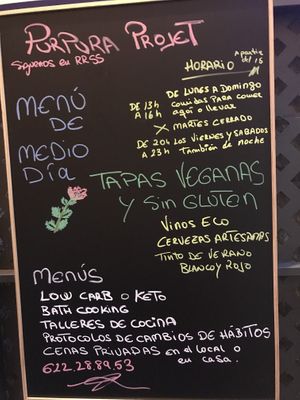 PURPURA PROJET
Síguenos en RRSS
HORARIO
A partir
del 15
MENÚ
DE
MEDIO
DÍA
DE LUNES A DOMINGO
DE 13h comidas PARA comer
A 16h aqui o llevar
X MARTES CERRADO
DE 20h LOS VIERNES Y SABADOS
A 23h También de noche
TAPAS VEGANAS
Y SIN GLUTEN
VINOS ECO
CERVEZAS ARTESANAS
TINTO DE VERANO
BLANCO Y ROJO
MENÚS
LOW CARB O KETO
BATH COOKING
TALLERES DE COCINA
PROTOCOLOS DE CAMBIOS DE HÁBITOS
CENAS PRIVADAS en el local o
en casa.
622.28.89.53